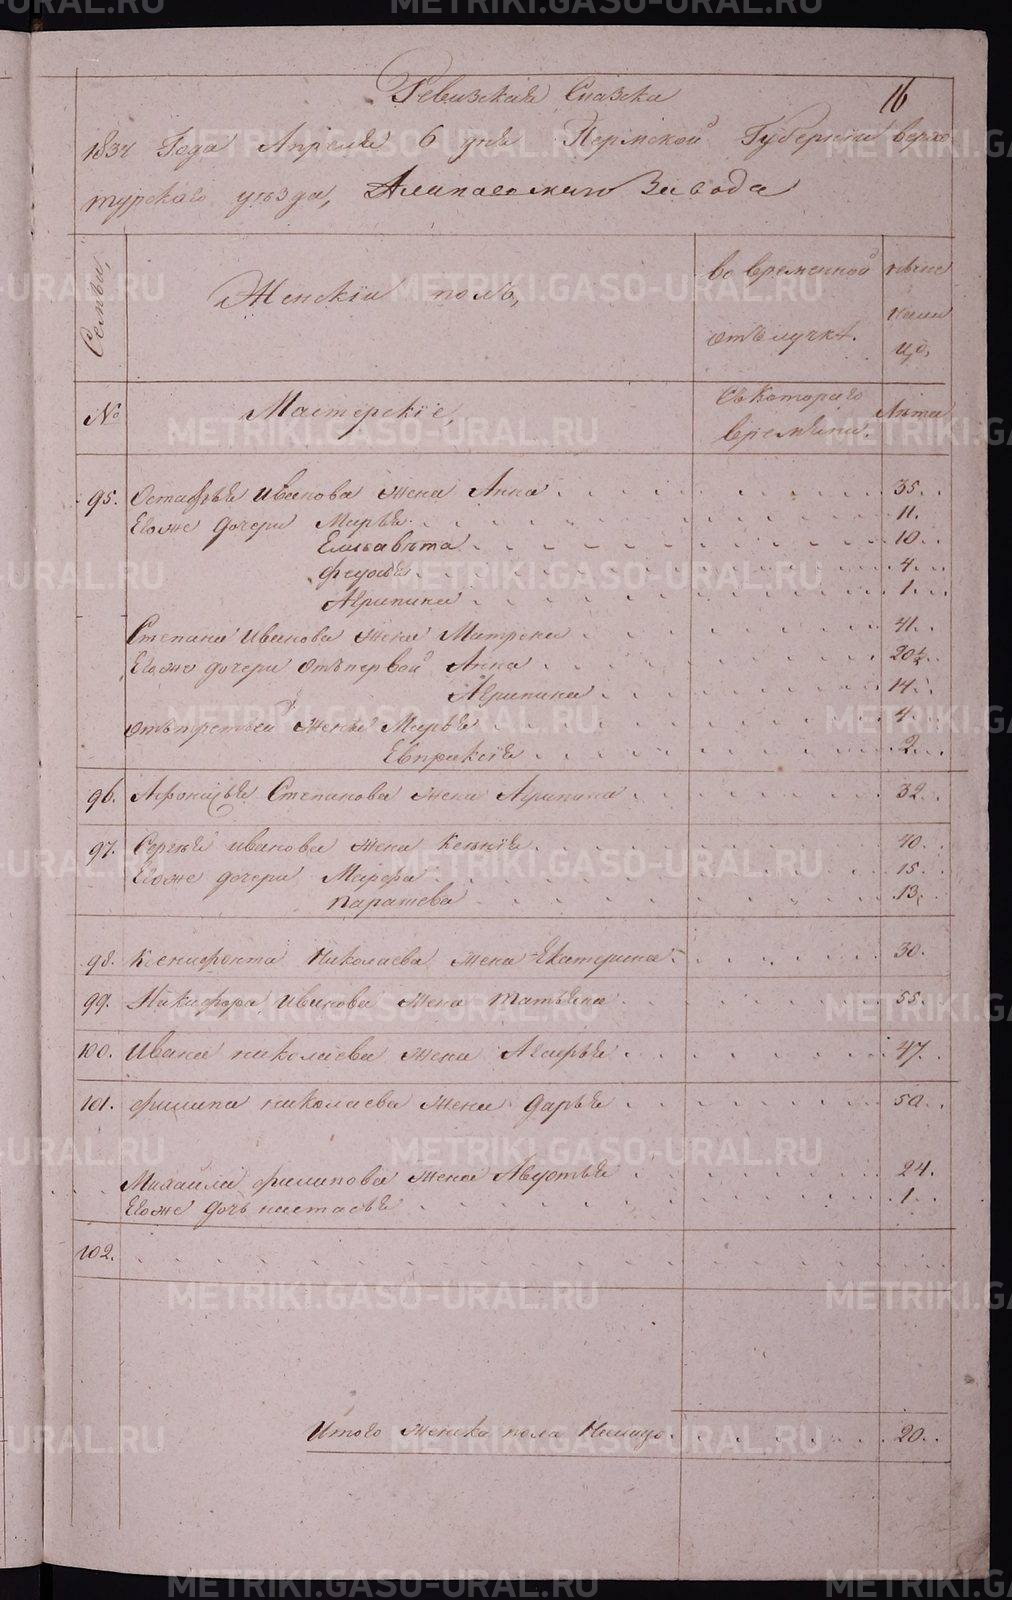 16
Ревизская Сказка
1834 Года Апреля 6 дня Пермской Губернии верхо
турскаго уезда, Алапаевскаго Завода
Семьи,
Женскiи полъ,
во временной
отълучке.
ныне
нали
цо,
№
Мастерскiе,
Съ котораго
времяни.
Лета
95. Остафья Иванова жена Анна 35.
Егоже дочери Марья 11.
Елисавета 10.
Федосья 4.
Агрипина 1.
Степана Иванова жена Матрена 41.
Егоже дочери отъ первой Анна 20½.
Агрипина 14.
отъ третьей жены Марья 4.
Евпраксiя 2.
96. Афонасья Степанова жена Агрипина 32.
97. Сергея Иванова жена Ксенiя 40.
Егоже дочери Марфа 15.
Парасева 13.
98. Ксенифонта Николаева жена Екатерина 30.
99. Никифора Иванова жена Татьяна 55.
100. Ивана Николаева жена Агафья 47.
101. Филипа Николаева жена Дарья 50.
Михайла Филипова жена Авдотья 24.
Егоже дочь Настасья 1.
102.
Итого женска пола Налицо 20.
METRIKI.GASO-URAL.RU